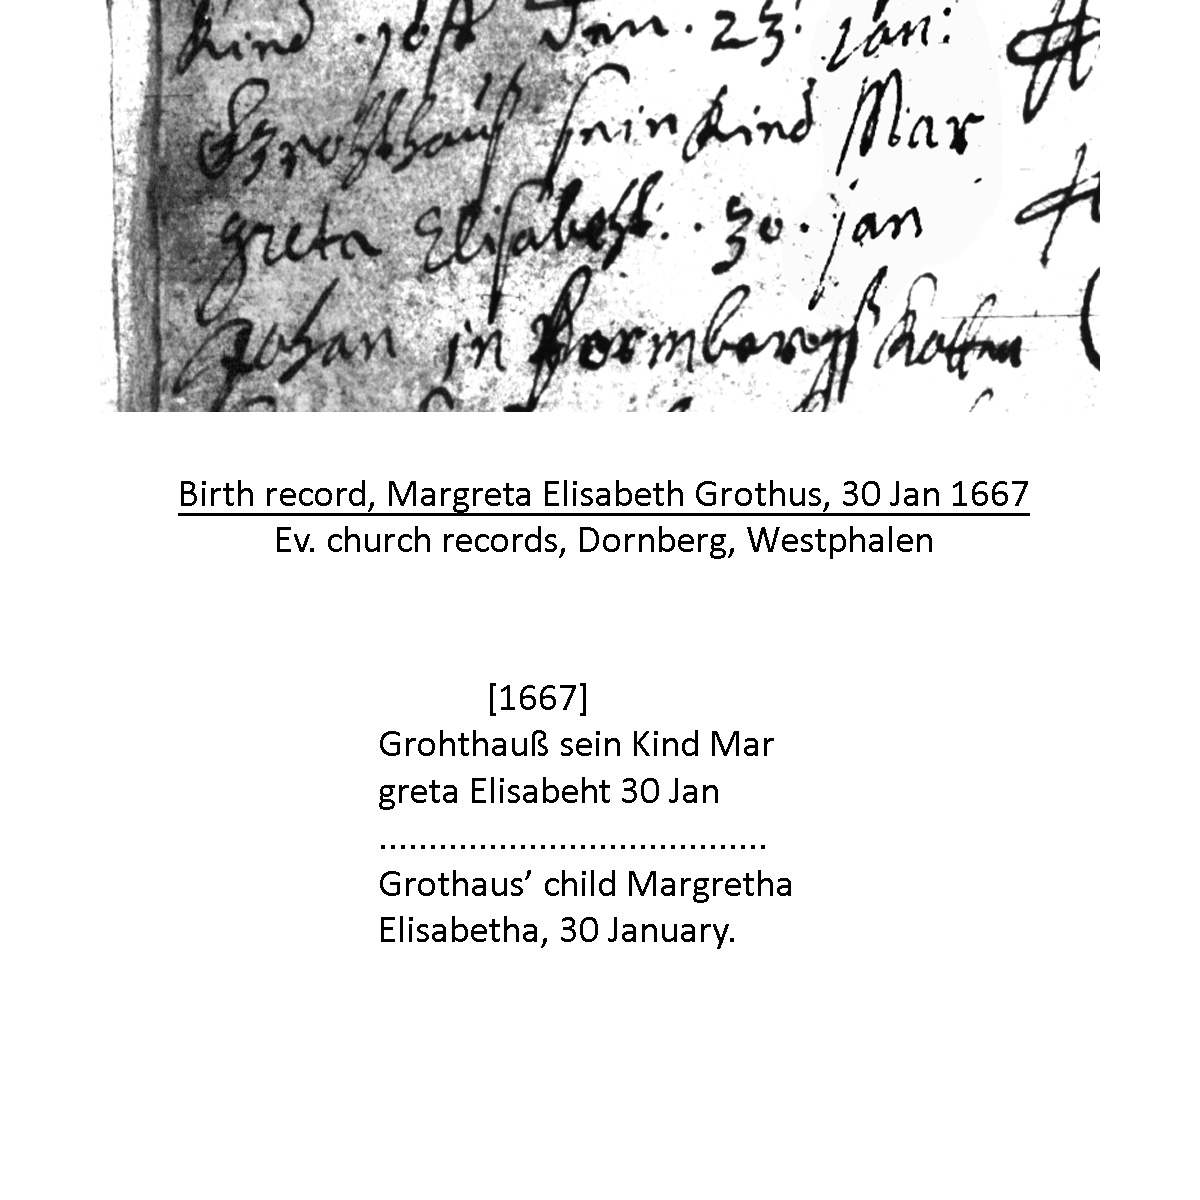 Kind Jost Dan. 23. jan:
Grohthauß sein Kind Mar
greta Elisabeht. 30. jan
Johan in Kotten
Birth record, Margreta Elisabeth Grothus, 30 Jan 1667
Ev. church records, Dornberg, Westphalen
[1667]
Grohthauß sein Kind Mar
greta Elisabeht 30 Jan
.......................................
Grothaus’ child Margretha
Elisabetha, 30 January.